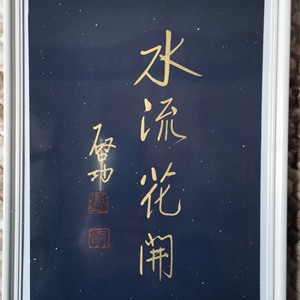 水流花開
啓功